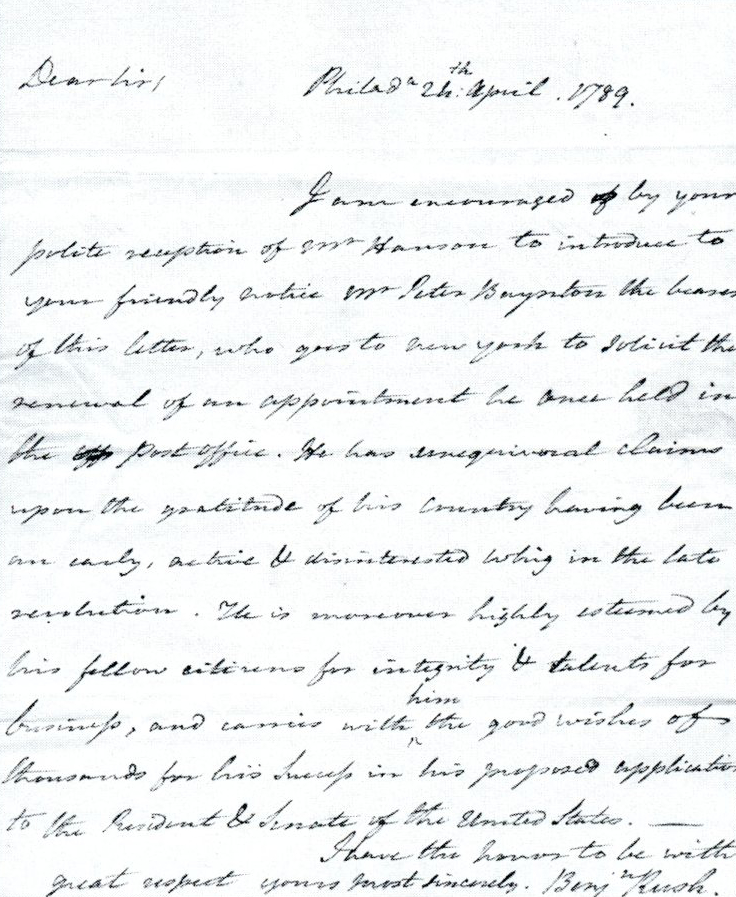 Dear Sir, Philad^a 24^th: April. 1789.
I am encouraged by your
polite reception of Mr Hanson to introduce to
your friendly notice Mr Peter Baynton the bearer
of this letter, who goes to new york to solicit the
renewal of an appointment he once held in
the post office. He has unequivocal claims
upon the gratitude of his Country having been
an early, active & disinterested whig in the late
revolution. He is moreover highly esteemed by
his fellow citizens for integrity & talents for
him
business, and carries with ^ the good wishes of
thousands for his success in his proposed application
to the President & Senate of the United States. —
I have the honor to be with
great respect yours most sincerely. Benj^n Rush.